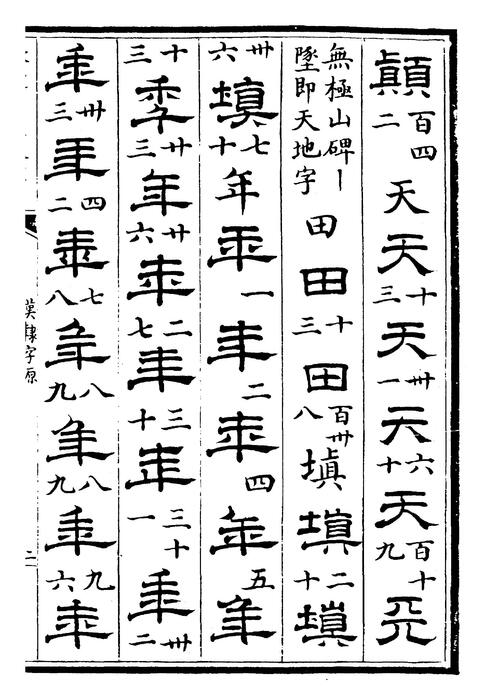 顚百四二天天十三天卅一天六十天百十九天
無極山碑丨墜即天地字田田十三田百卅八塡塡二十塡
卅六塡七十年年一年二年四年五年
十三秊廿三年廿六年二七年三十年三十一年卅二
年卅三年四二年七八年八九年八九年九六年
漢隸字原 二